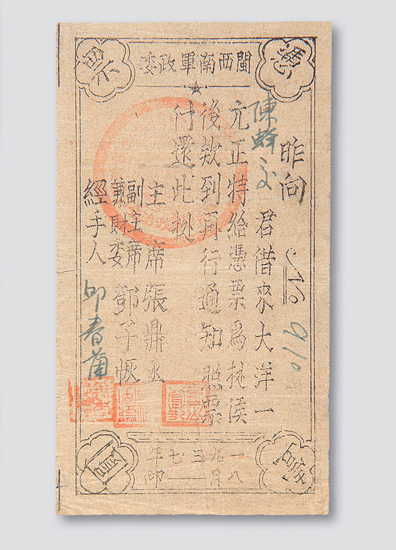 憑票
閩西南軍政委
昨向陳蜂交君借來大洋一
元正特給憑票為據俟
後欵到再行通知照票
付還此據
主席張鼎丞
副主席
兼財委鄧子恢
經手人 邱春蘭
No 910
一九三七年
八月一印
圓